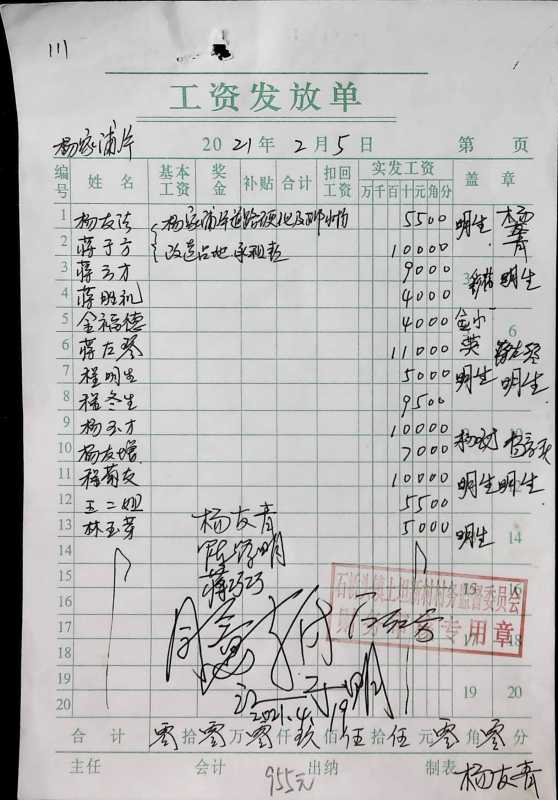 111
工资发放单
杨家浦片 2021年2月5日 第 页
编号 姓名 基本工资 奖金 补贴 合计 扣回工资 实发工资 盖章
万千百十元角分
1 杨友法 杨家浦片道路硬化及 5500 明生 杨青
2 蒋于方 改造占地承租款 10000
3 蒋云才 9000 明生
4 蒋胜礼 4000
5 金福德 4000 金小英
6 蒋左琴 11000 6
7 程明生 5000 明生 明生
8 程冬生 9500
9 杨玉才 10000
10 杨友增 7000
11 程菊友 10000 明生 明生
12 王二姐 5500
13 林玉芽 5000 明生
14 杨友青 14
15 15 16
16 蒋巧巧
17 同意支付 17 18
石 镇上坦新村村务监督委员会
专用章
18
19 19 20
20 2021.4.19
合计 零拾零万零仟玖佰伍拾伍元零角零分
主任 会计 出纳 制表 杨友青
955元